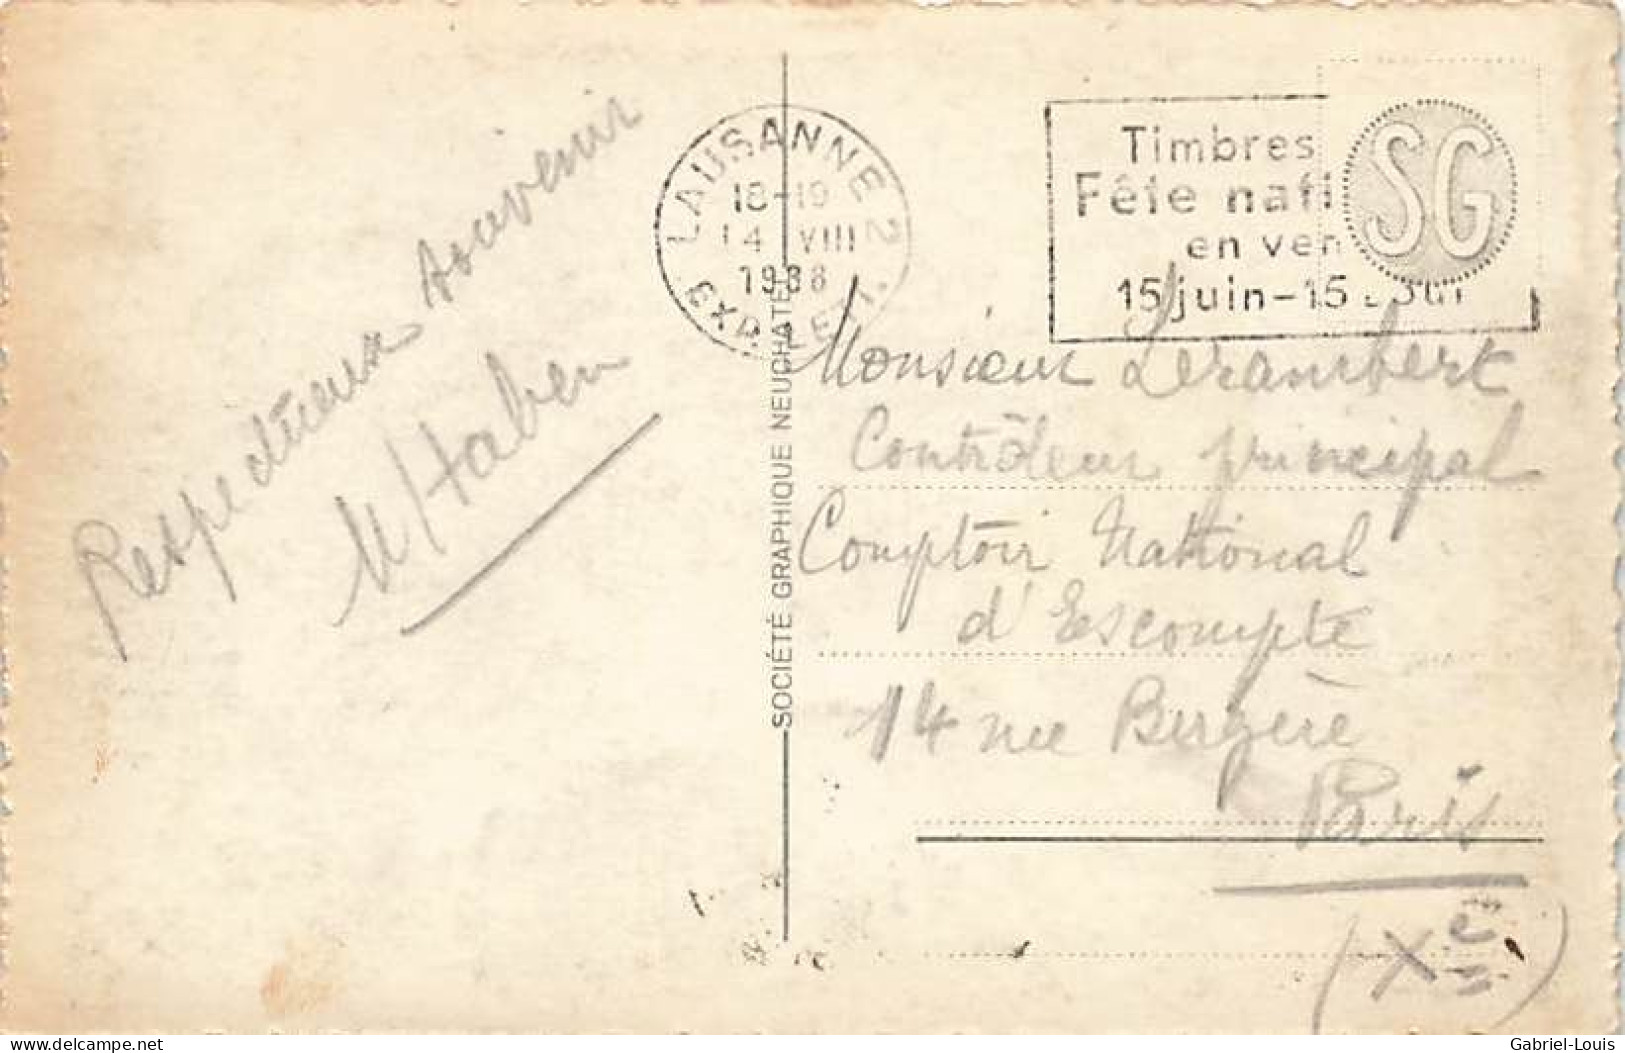 Respectueux souvenir
LAUSANNE 2
18-19
14 VIII
1938
EXP. LETT.
Timbres
Fête nati
en ven
15 juin - 15 août
SG
SOCIÉTÉ GRAPHIQUE NEUCHATEL
Monsieur Lerambert
Contrôleur principal
Comptoir National
d'Escompte
14 rue Bergère
Paris
(Xe)
delcampe.net
Gabriel-Louis